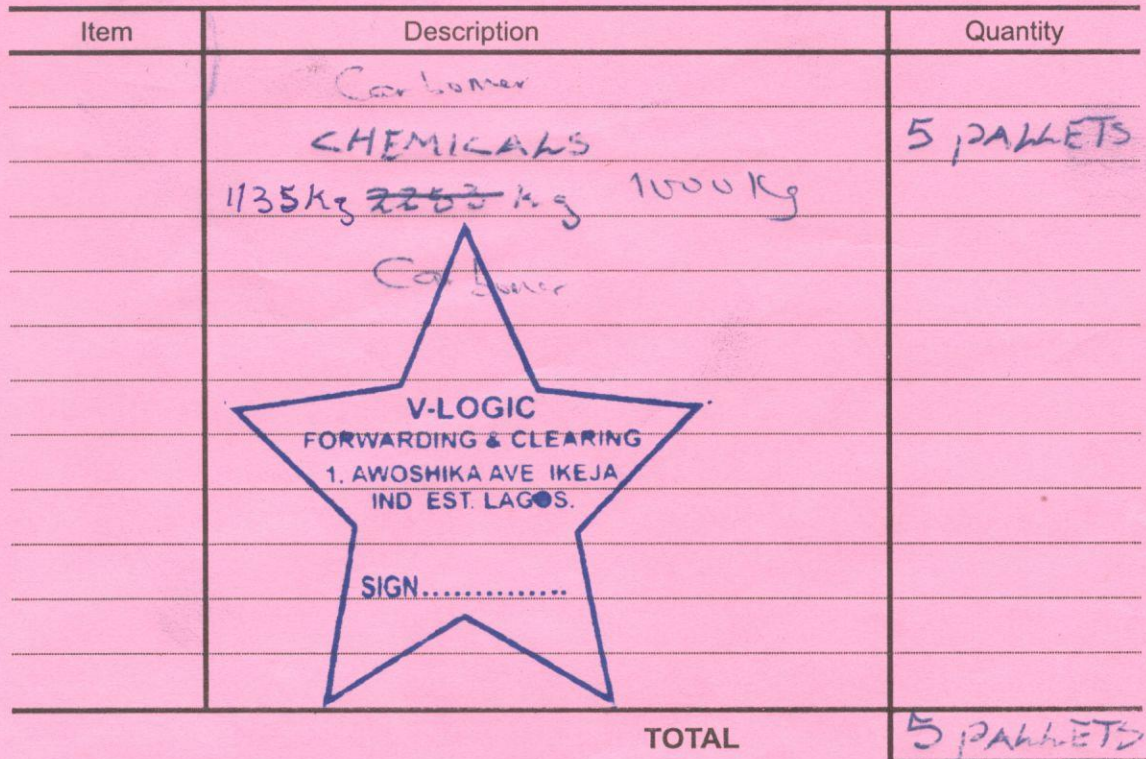 Item Description Quantity
Carbomer
CHEMICALS 5 PALLETS
1135kg 2253 kg 1000 Kg
Carbomer
V-LOGIC
FORWARDING & CLEARING
1. AWOSHIKA AVE IKEJA
IND EST. LAGOS.
SIGN..............
TOTAL 5 PALLETS